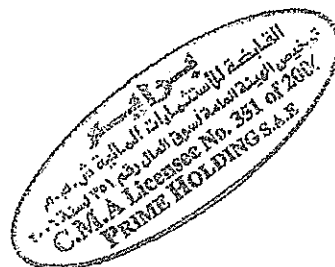 برايم
القابضة للاستثمارات المالية ش.م.م
ترخيص الهيئة العامة لسوق المال رقم ٣٥١ لسنة
C.M.A Licensee No. 351 of 200
PRIME HOLDING S.A.E